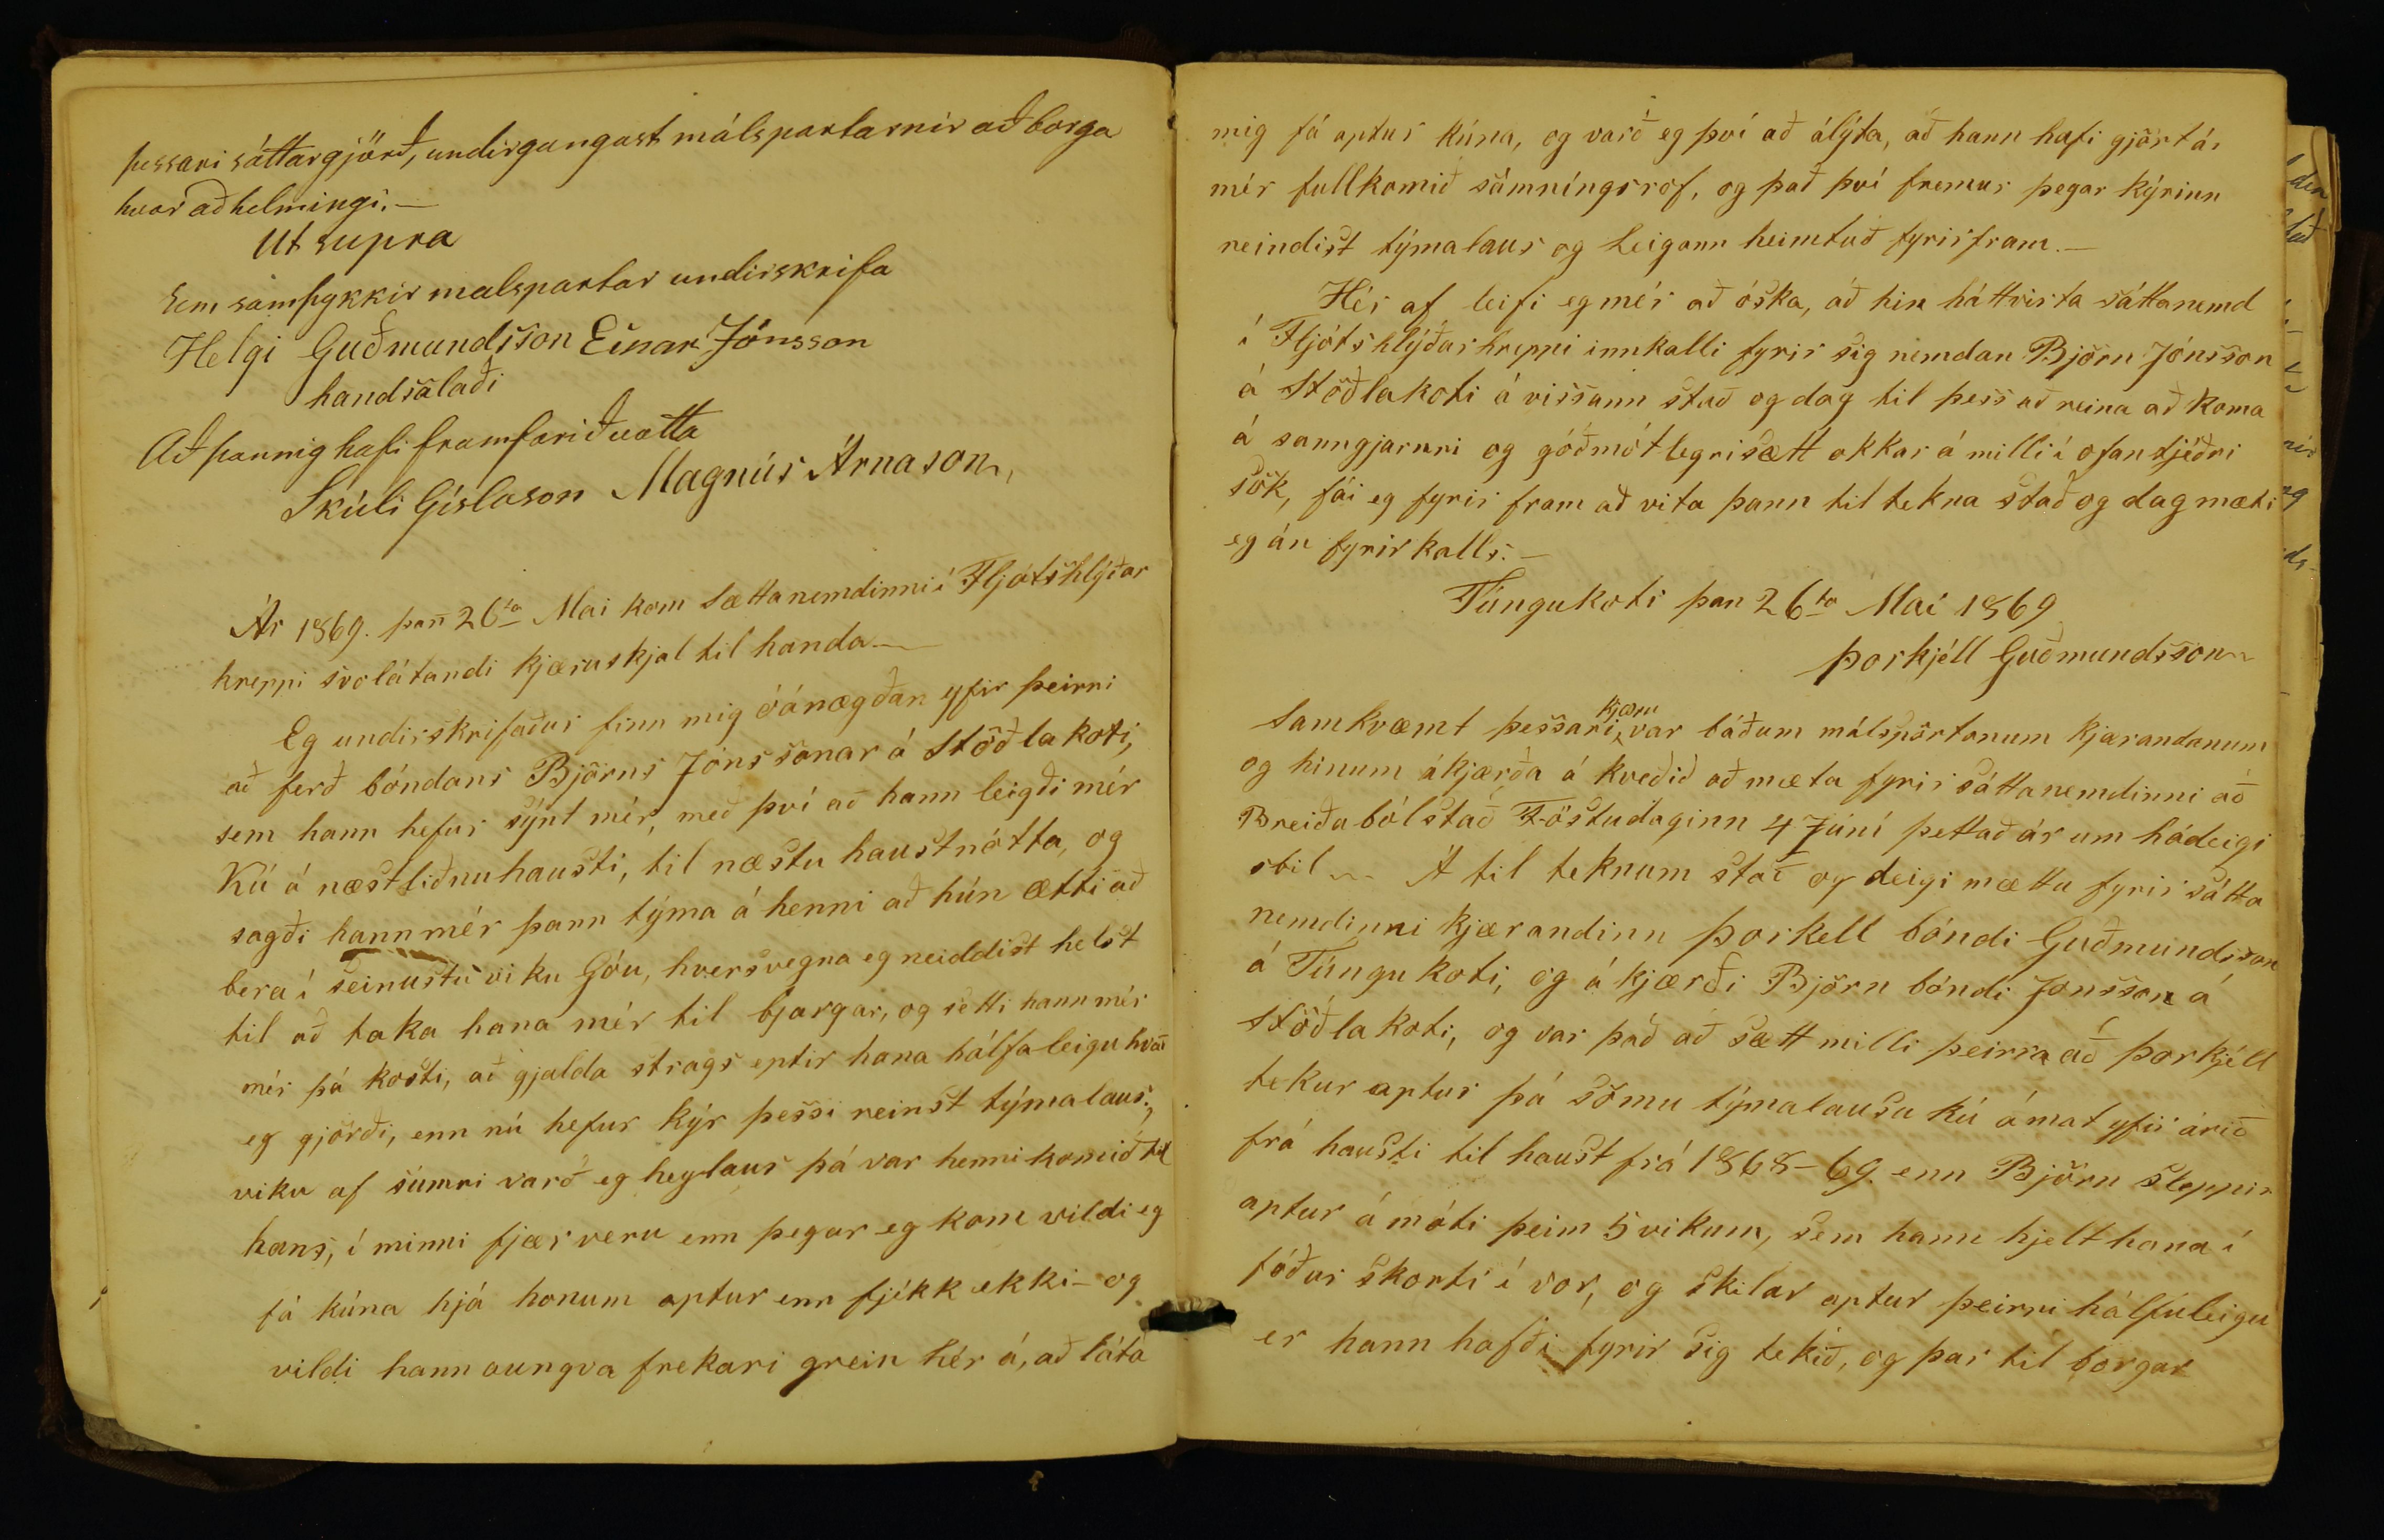 þessari sáttargjörð, undirgangast málspartarnir að borga
hvor að helmingi. —
Ut supra
Sem samþykkir malspartar undirskrifa
Helgi Guðmundsson Einar Jónsson
handsalaði
Að þannig hafi framfarið vatta
Skúli Gíslason Magnús Árnason,
Ár 1869. þan̄ 26ta Mai kom Sættanemdinni í Fljótshlýðar
hreppi svolátandi kjæruskjal til handa —
Eg undirskrifaður finn mig óánægðan yfir þeirri
að ferð bóndans Björns Jónssonar á Stöðlakoti,
sem hann hefur sýnt mér, með því að hann leigði mér
Kú á næstliðnu hausti, til næstu haustnótta, og
sagði hann mér þann týma á henni að hún ætti að
bera í seinustu viku Góu, hversvegna eg neiddist helst
til að taka hana mér til bjargar, og setti hann mér
mér þá kosti, að gjalda strags eptir hana hálfa leigu hvað
eg gjörði, enn nú hefur kýr þessi reinst týmalaus.,
viku af sumri varð eg heylaus þá var henni komið til
hans, í minni fjærveru enn þegar eg kom vildi eg
fá kúna hjá honum aptur enn fjékk ekki – og
vildi hann aungva frekari grein hér á, að láta
mig fá aptur kúna, og varð eg því að álýta, að hann hafi gjört á
mér fullkomið samníngsrof, og það því fremur þegar kýrinn
reindist týmalaus og Leigann heimtuð fyrirfram. —
Hér af leifi eg mér að óska, að hin háttvirta sáttanemd
í Fljótshlýðarhreppi innkalli fyrir sig nemdan Björn Jónsson
á Stöðlakoti á vissann stað og dag til þess að reina að koma
á sanngjarnri og góðmótlegri sætt okkar á milli í ofanstjéðri
sök, fái eg fyrir fram að vita þann til tekna stað og dag mæti
eg án fyrirkalls. —
Túngukoti þan 26ta Mai 1869
Þorkjéll Guðmundsson
Samkvæmt þessari kjæru var báðum málspörtonum kjærandanum
og hinum ákjærða á kveðið að mæta fyrir sáttanemdinni að
Breiðabólstað Föstudaginn 4 Júní þettað ár um hádeigi
sbil — Á til teknum stað og deigi mættu fyrir sátta
nemdinni kjærandinn Þorkell bóndi Guðmundsson
á Túngukoti, og á kjærði Björn bóndi Jonsson á
Stöðlakoti, og var það að sætt milli þeirra að Þorkjéll
tekur aptur þá sömu týmalausu kú á mat yfir árið
frá hausti til haust frá 1868–69. enn Björn sleppir
aptur á móti þeim 5 vikum, sem hann hjelt hana í
fóður skorti í vor, og skilar aptur þeirri hálfuleigu
er hann hafði fyrir sig tekið, og þar til borgar